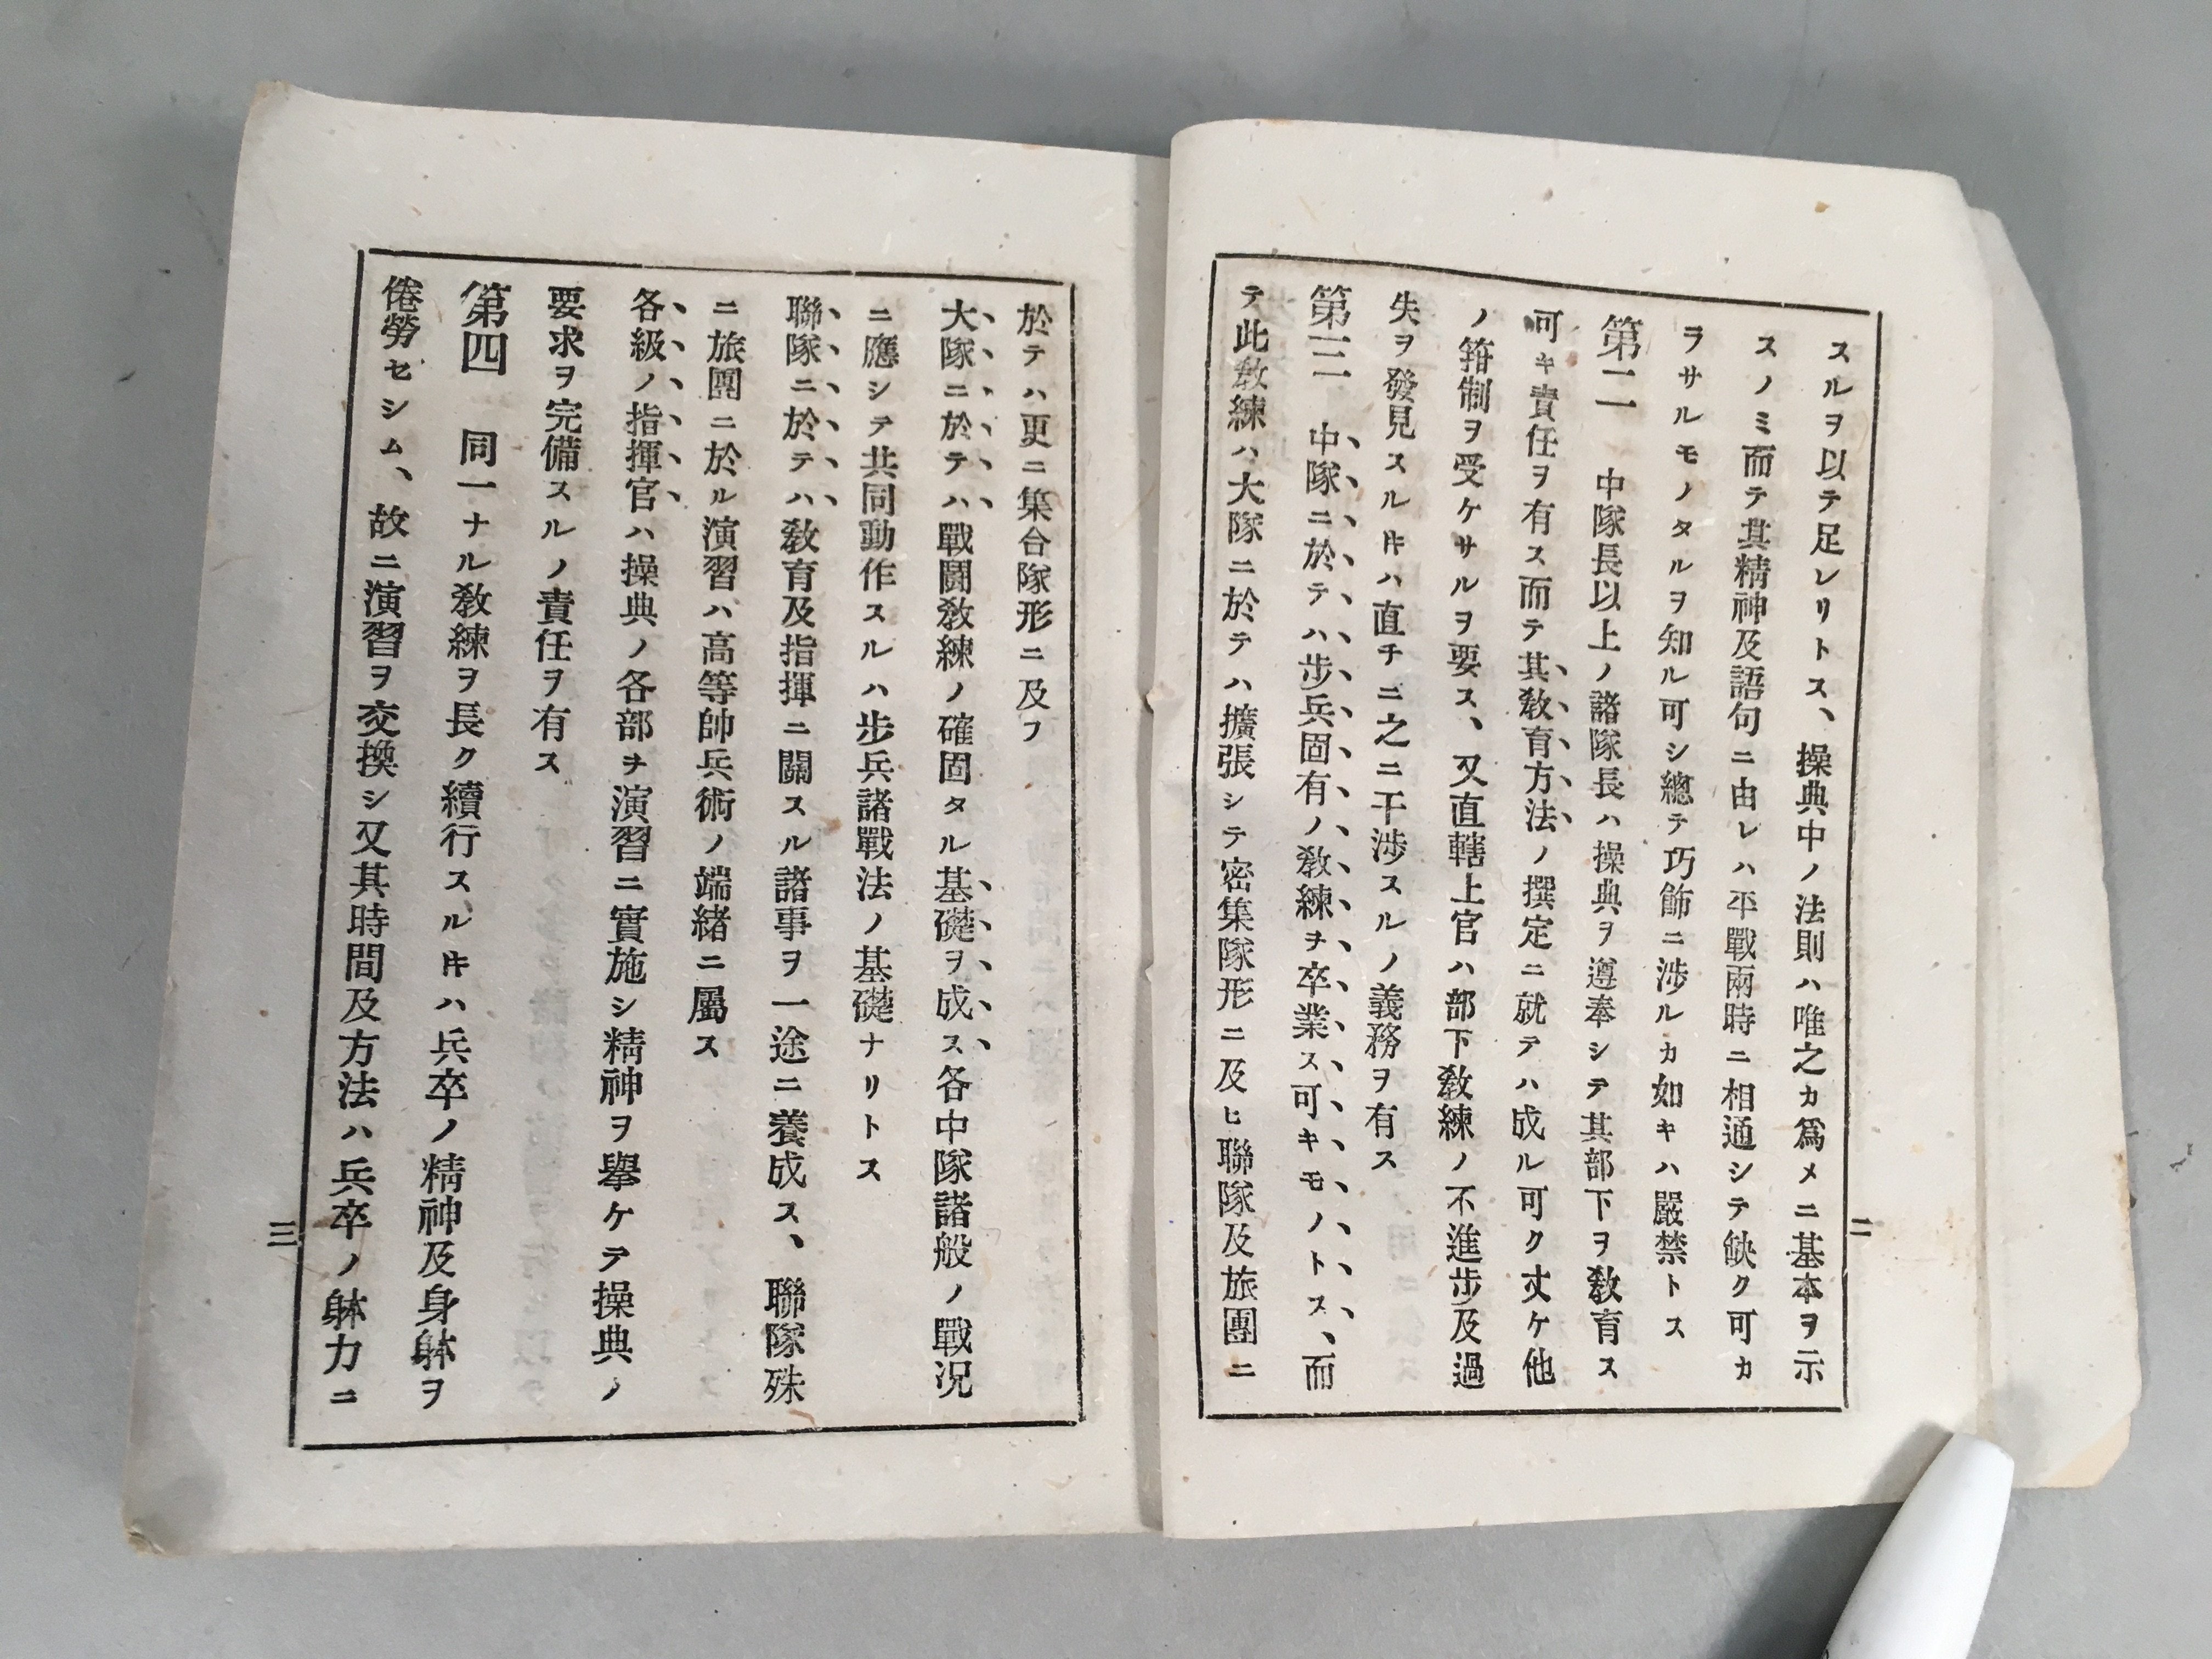 スルヲ以テ足レリトス、操典中ノ法則ハ唯之カ爲メニ基本ヲ示
スノミ而テ其精神及語句ニ由レハ平戰兩時ニ相通シテ缺ク可カ
ラサルモノタルヲ知ル可シ總テ巧飾ニ涉ルカ如キハ嚴禁トス
第二 中隊長以上ノ諸隊長ハ操典ヲ遵奉シテ其部下ヲ敎育ス
可キ責任ヲ有ス而テ其敎育方法ノ撰定ニ就テハ成ル可ク丈ケ他
ノ箝制ヲ受ケサルヲ要ス、又直轄上官ハ部下敎練ノ不進步及過
失ヲ發見スルㇳキハ直チニ之ニ干涉スルノ義務ヲ有ス
第三 中隊ニ於テハ步兵固有ノ敎練ヲ卒業ス可キモノトス、而
テ此敎練ハ大隊ニ於テハ擴張シテ密集隊形ニ及ヒ聯隊及旅團ニ
二
於テハ更ニ集合隊形ニ及フ
大隊ニ於テハ戰鬪敎練ノ確固タル基礎ヲ成ス各中隊諸般ノ戰況
ニ應シテ共同動作スルハ步兵諸戰法ノ基礎ナリトス
聯隊ニ於テハ敎育及指揮ニ關スル諸事ヲ一途ニ養成ス、聯隊殊
ニ旅團ニ於ル演習ハ高等帥兵術ノ端緒ニ屬ス
各級ノ指揮官ハ操典ノ各部ヲ演習ニ實施シ精神ヲ擧ケテ操典ノ
要求ヲ完備スルノ責任ヲ有ス
第四 同一ナル敎練ヲ長ク續行スルㇳキハ兵卒ノ精神及身躰ヲ
倦勞セシム、故ニ演習ヲ交換シ又其時間及方法ハ兵卒ノ躰力ニ
三